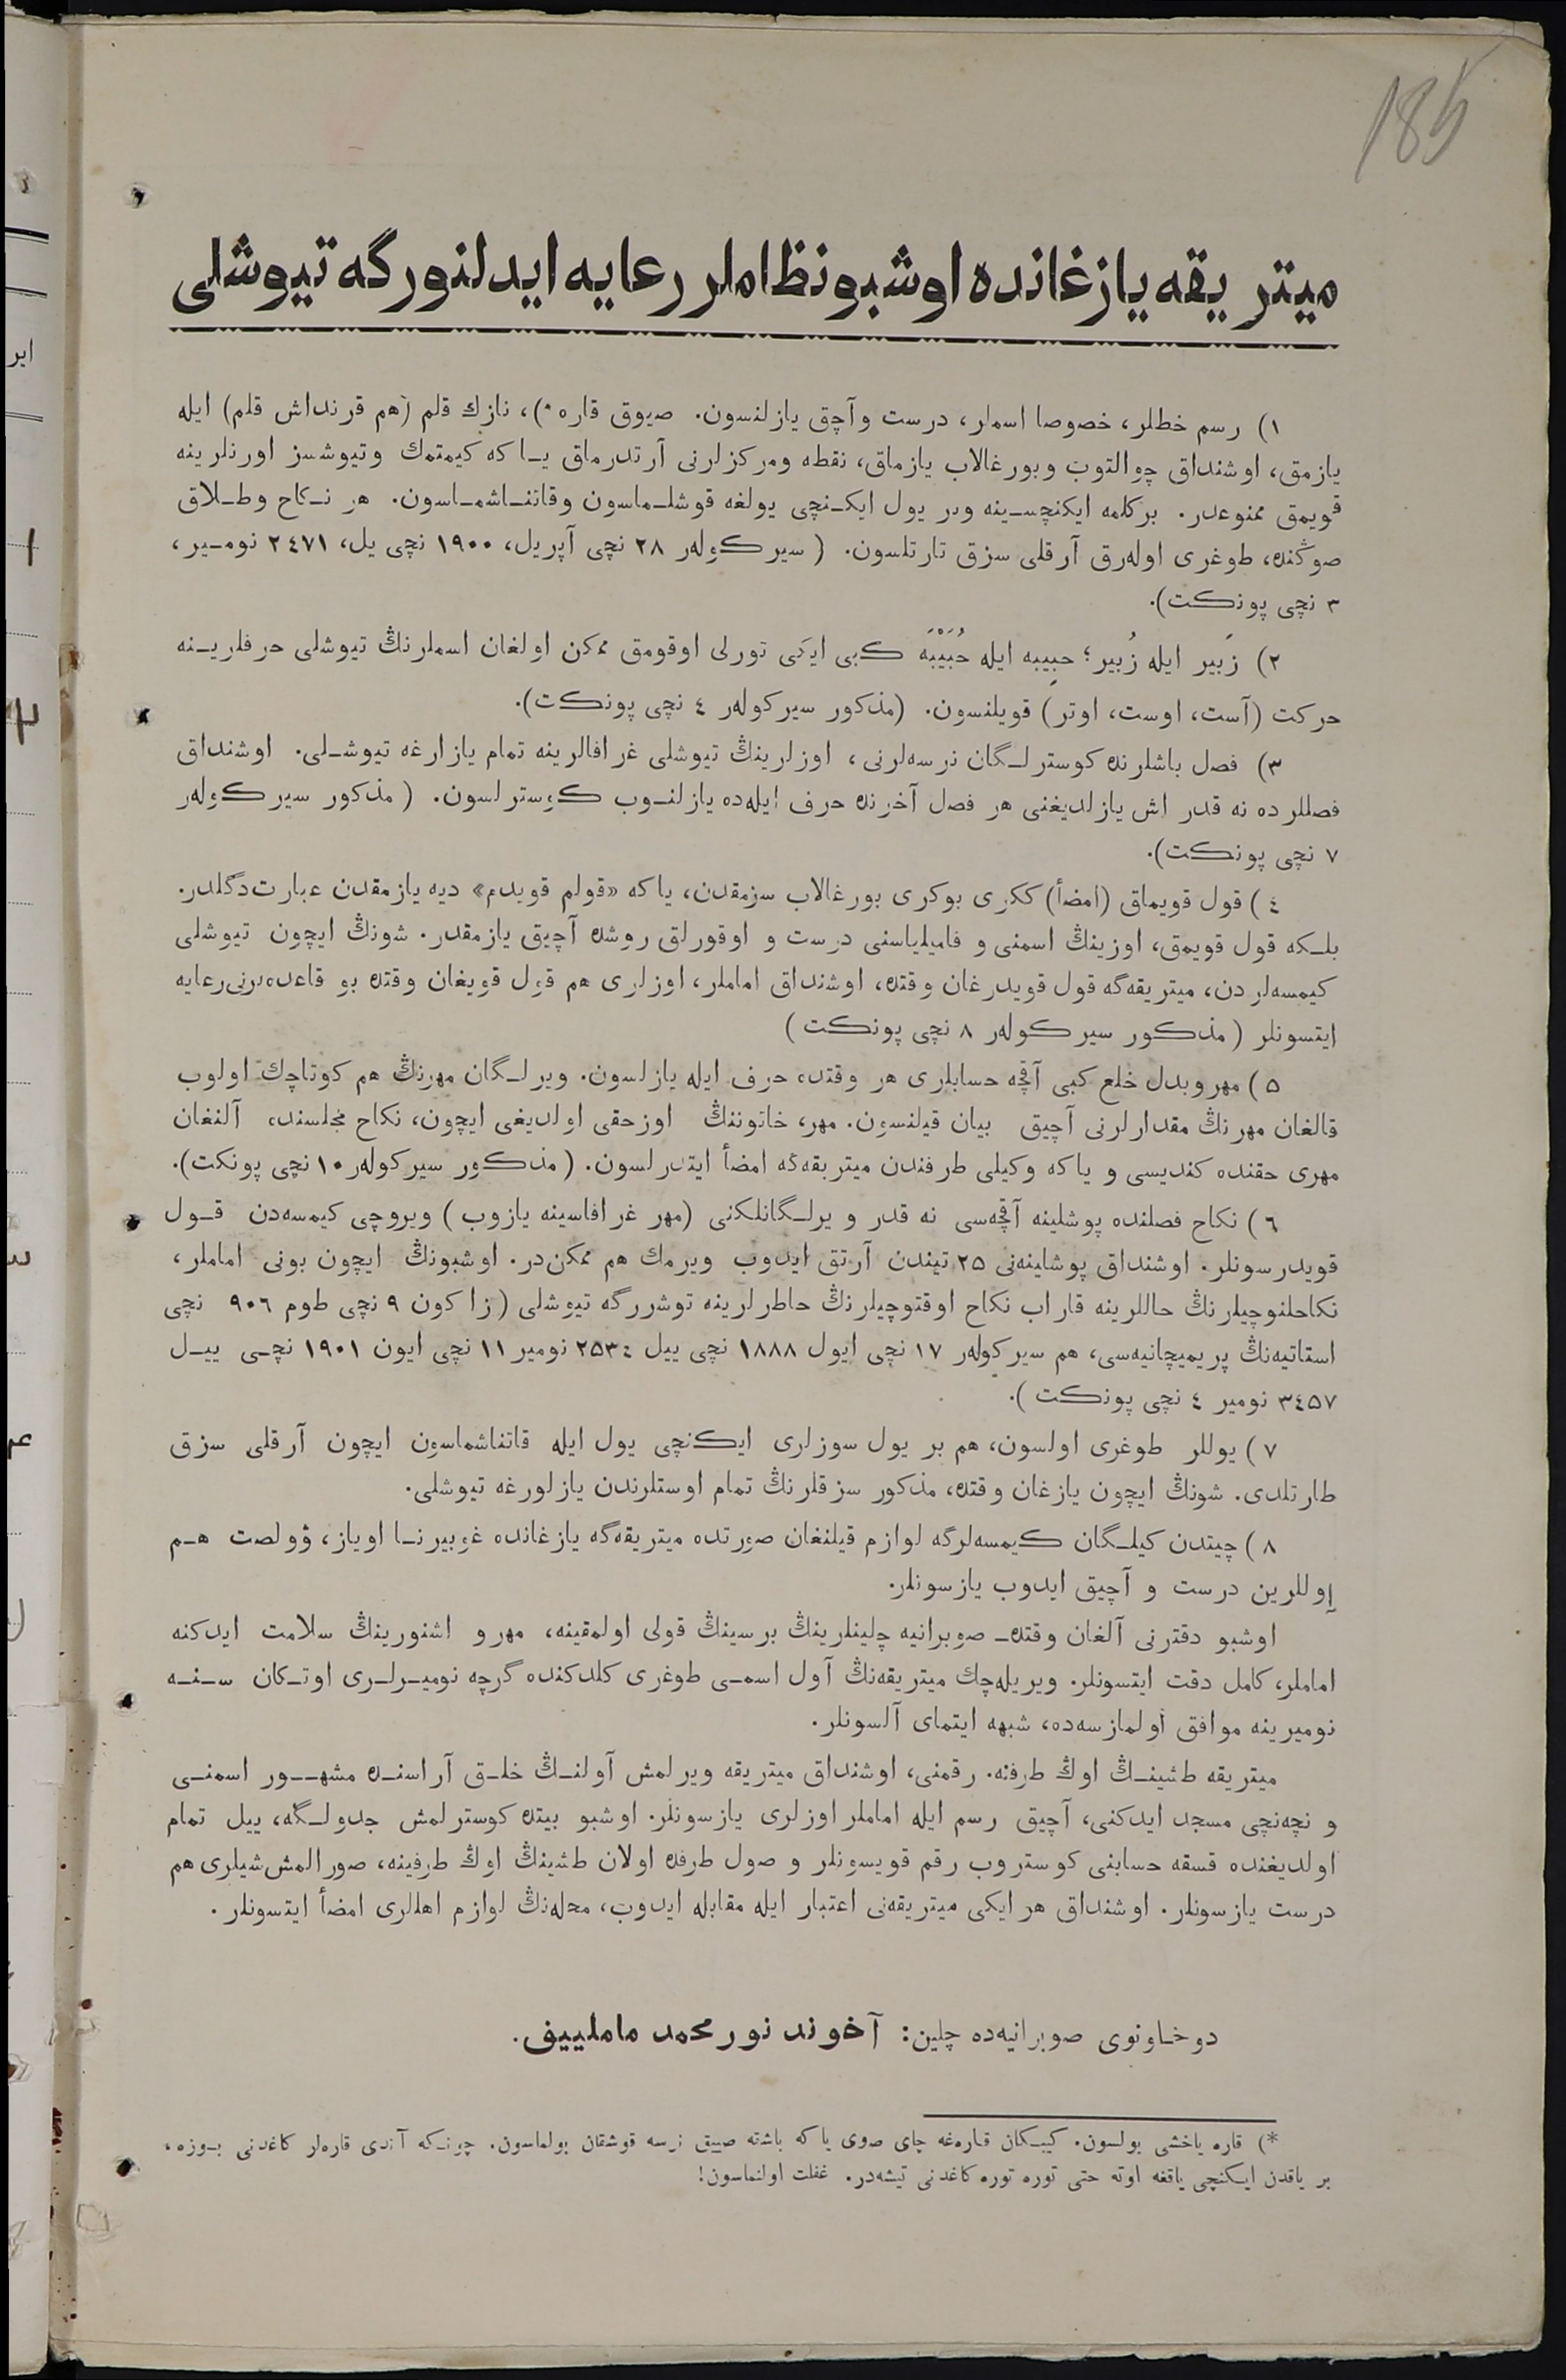 185
ميتريقه يازغانده اوشبو نظاملر رعايه ايدلنورگه تيوشلی
١) رسم خطلر، خصوصا اسملر، درست وآچق يازلنسون. صيوق قاره *)، نازك قلم (هم قرنداش قلم) ايله
يازمق، اوشنداق چوالتوب وبورغالاب يازماق، نقطه ومركزلرنی آرتدرماق يـا كه كيمتمك وتيوشسز اورنلرينه
قويمق ممنوعدر. بركلمه ايكنچسـينه وبر يول ايكـنچی يولغه قوشلـماسون وقاتنـاشمـاسون. هر نـكاح وطـلاق
صوڭنده، طوغری اولەرق آرقلی سزق تارتلسون. (سيركولەر ٢٨ نچی آپريل، ١٩٠٠ نچی يل، ٢٤٧١ نومـير،
٣ نچی پونكت).
٢) زَبير ايله زُبير؛ حبِيبه ايله حُبَيْبَه كبی ايكی تورلی اوقومق ممكن اولغان اسملرنڭ تيوشلی حرفلريـنه
حركت (آست، اوست، اوتر) قويلنسون. (مذكور سيركولەر ٤ نچی پونكت).
٣) فصل باشلرنده كوسترلـگان نرسەلرنی، اوزلرينڭ تيوشلی غرافالرينه تمام يازارغه تيوشـلی. اوشنداق
فصللرده نه قدر اش يازلديغنی هر فصل آخرنده حرف ايله‌ده يازلنـوب كوسترلسون. (مذكور سيركولەر
٧ نچی پونكت).
٤) قول قويماق (امضأ) ككری بوكری بورغالاب سزمقدن، ياكه «قولم قويدم» ديه يازمقدن عبارت دگلدر.
بلـكه قول قويمق، اوزينڭ اسمنی و فاميلياسنی درست و اوقورلق روشده آچيق يازمقدر. شونڭ ايچون تيوشلی
كيمسەلردن، ميتريقەگه قول قويدرغان وقتده، اوشنداق اماملر، اوزلری هم قول قويغان وقتده بو قاعدەلرنی رعايه
ايتسونلر (مذكور سيركولەر ٨ نچی پونكت)
٥) مهر وبدل خلع كبی آقچه حسابلری هر وقتده حرف ايله يازلسون. ويرلـگان مهرنڭ هم كوتاچك اولوب
قالغان مهرنڭ مقدارلرنی آچيق بيان قيلنسون. مهر، خاتوننڭ اوزحقی اولديغی ايچون، نكاح مجلسنده آلنغان
مهری حقنده كنديسی و ياكه وكيلی طرفندن ميتريقەگه امضأ ايتدرلسون. (مذكور سيركولەر ١٠ نچی پونكت).
٦) نكاح فصلنده پوشلينه آقچەسی نه قدر و يرلـگانلكنی (مهر غرافاسينه يازوب) ويروچی كيمسەدن قـول
قويدرسونلر. اوشنداق پوشلينەنی ٢٥ تيندن آرتق ايدوب ويرمك هم ممكن‌در. اوشبونڭ ايچون بونی اماملر،
نكاحلنوچيلرنڭ حاللرينه قاراب نكاح اوقتوچيلرنڭ خاطرلرينه توشررگه تيوشلی (زاكون ٩ نچی طوم ٩٠٦ نچی
استاتيەنڭ پريميچانيەسی، هم سيركولەر ١٧ نچی ايول ١٨٨٨ نچی ييل ٢٥٣٤ نومير ١١ نچی ايون ١٩٠١ نچـی ييـل
٣٤٥٧ نومير ٤ نچی پونكت).
٧) يوللر طوغری اولسون، هم بر يول سوزلری ايكنچی يول ايله قاتناشماسون ايچون آرقلی سزق
طارتلدی. شونڭ ايچون يازغان وقتده، مذكور سزقلرنڭ تمام اوستلرندن يازلورغه تيوشلی.
٨) چيتدن كيلـگان كيمسەلرگه لوازم قيلنغان صورتده ميتريقەگه يازغانده غوبيرنـا اوياز، ۋولصت هـم
آوللرين درست و آچيق ايدوب يازسونلر.
اوشبو دفترنی آلغان وقتده صوبرانيه چلينلرينڭ برسينڭ قولی اولمقينه، مهر و اشنورينڭ سلامت ايدكنه
اماملر، كامل دقت ايتسونلر. ويريلەچك ميتريقەنڭ آول اسمـی طوغری كلدكنده گرچه نوميـرلـری اوتـكان سـنـه
نوميرينه موافق اولمازسەده، شبهه ايتمای آلسونلر.
ميتريقه طشينـڭ اوڭ طرفنه. رقمنی، اوشنداق ميتريقه ويرلمش آولنـڭ خلـق آراسنـده مشهـور اسمنـی
و نچەنچی مسجد ايدكنی، آچيق رسم ايله اماملر اوزلری يازسونلر. اوشبو بيتده كوسترلمش جدولـگه، ييل تمام
اولديغنده قسقه حسابنی كوستروب رقم قويسونلر و صول طرفده اولان طشينڭ اوڭ طرفينه، صورالمش شيلری هم
درست يازسونلر. اوشنداق هر ايكی ميتريقەنی اعتبار ايله مقابله ايدوب، محلەنڭ لوازم اهللری امضأ ايتسونلر.
دوخاونوی صوبرانيەده چلين: آخوند نورمحمد ماملييف.
*) قاره ياخشی بولسون. كيبـكان قارەغه چای صوی ياكه باشته صييق نرسه قوشقان بولماسون. چونـكه آندی قارەلر كاغدنی بـوزه،
بر ياقدن ايـكنچی ياقغه اوته حتی توره توره كاغدنی تيشه‌در. غفلت اولنماسون!